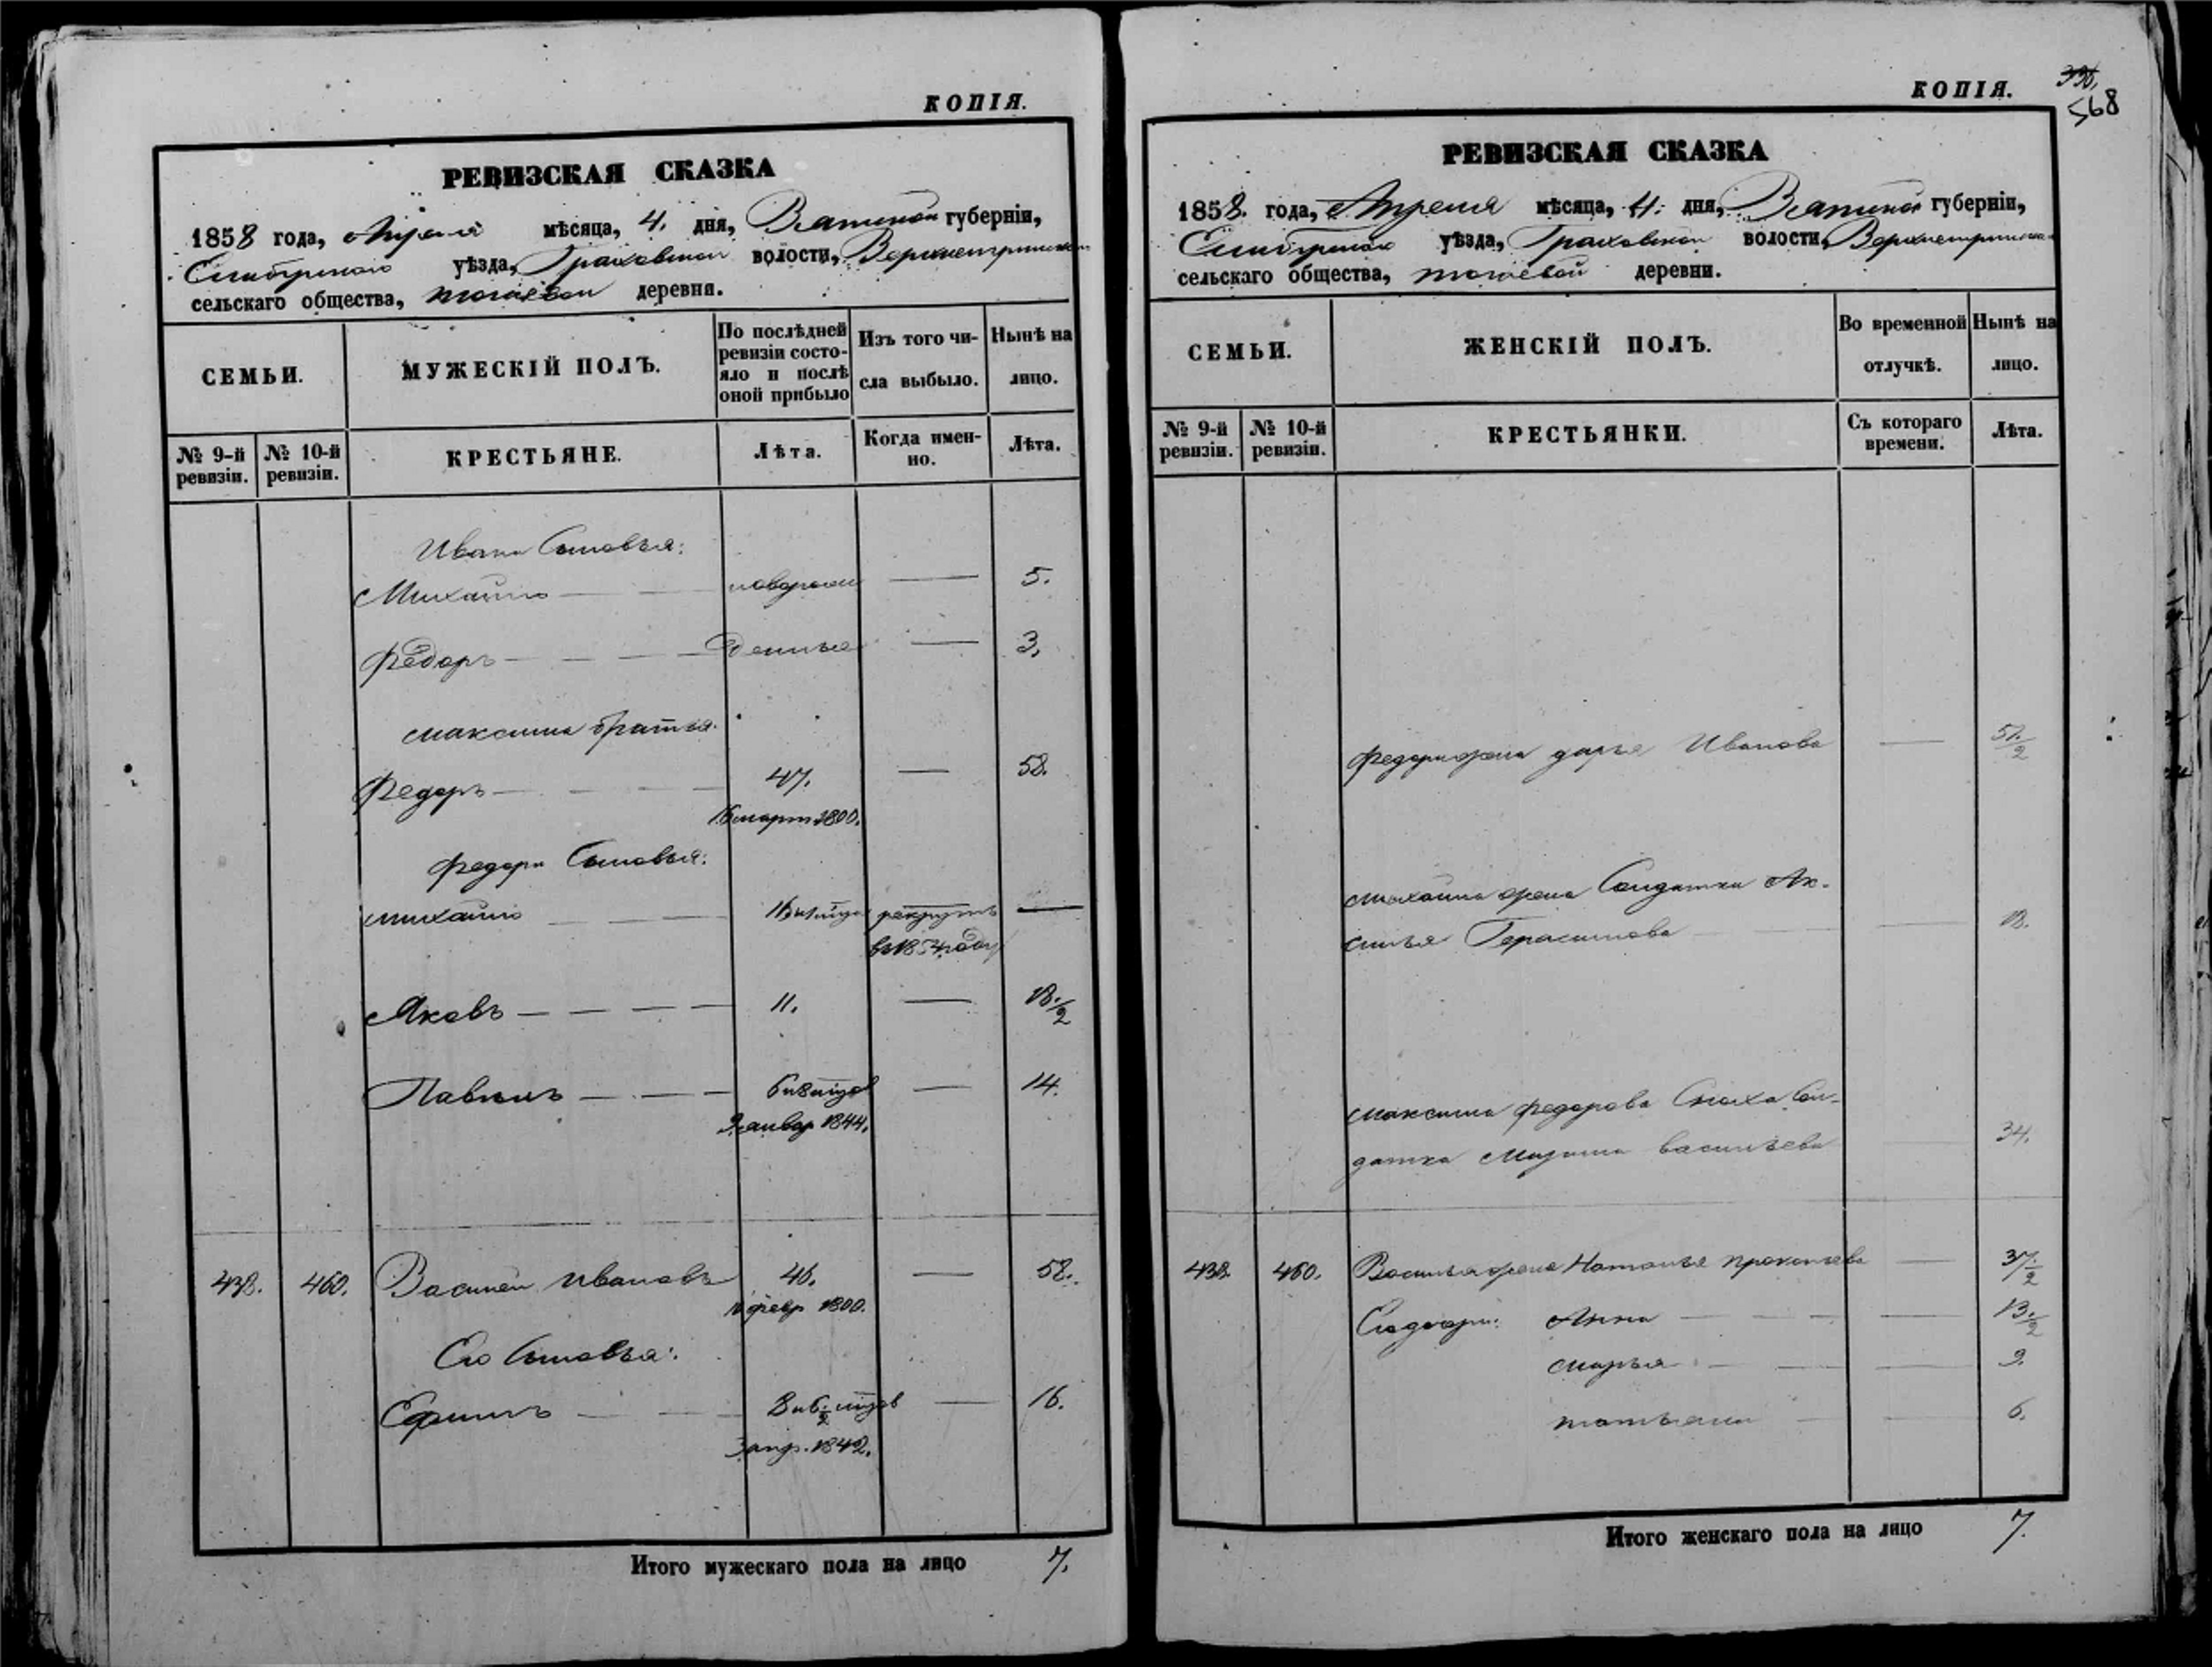 КОПІЯ.
РЕВИЗСКАЯ СКАЗКА
1858 года, Апреля мѣсяца, 4. дня, Вятской губерніи,
уѣзда, Граховской волости,
сельскаго общества, деревни.
СЕМЬИ.
МУЖЕСКІЙ ПОЛЪ.
По послѣдней ревизіи состояло и послѣ оной прибыло
Изъ того числа выбыло.
Нынѣ на лицо.
№ 9-й ревизіи.
№ 10-й ревизіи.
КРЕСТЬЯНЕ.
Лѣта.
Когда именно.
Лѣта.
Ивана Сыновья:
Михайло — — — 5.
Федоръ — — — — 3.
Максима братья.
Федоръ — — — 47. — 58.
16 март 1800.
Федора Сыновья:
Михайло — — рекрутъ —
въ 1854 году
Яковъ — — — — 11. — 18.½
Павелъ — — — — 14.
9 январ 1844.
438. 460. Василей Ивановъ 46. — 58.
февр 1800.
Его Сыновья:
Ефимъ — — 8 и 6.½ — 16.
3 апр. 1842.
Итого мужескаго пола на лицо 7.
КОПІЯ.
568
РЕВИЗСКАЯ СКАЗКА
1858. года, Апреля мѣсяца, 4. дня, Вятской губерніи,
уѣзда, Граховской волости,
сельскаго общества, деревни.
СЕМЬИ.
ЖЕНСКІЙ ПОЛЪ.
Во временной отлучкѣ.
Нынѣ на лицо.
№ 9-й ревизіи.
№ 10-й ревизіи.
КРЕСТЬЯНКИ.
Съ котораго времени.
Лѣта.
Федора жена Дарья Иванова — 51.½
Михайла жена Солдатка Ак-
синья Герасимова — — 18.
Максима Федорова Сноха Сол-
датка Васильева — 34.
438 460. Василья жена Наталья Прокопьева — 37.½
Анна — — — — 13.½
Марья — — — 9.
Татьяна — — 6.
Итого женскаго пола на лицо 7.